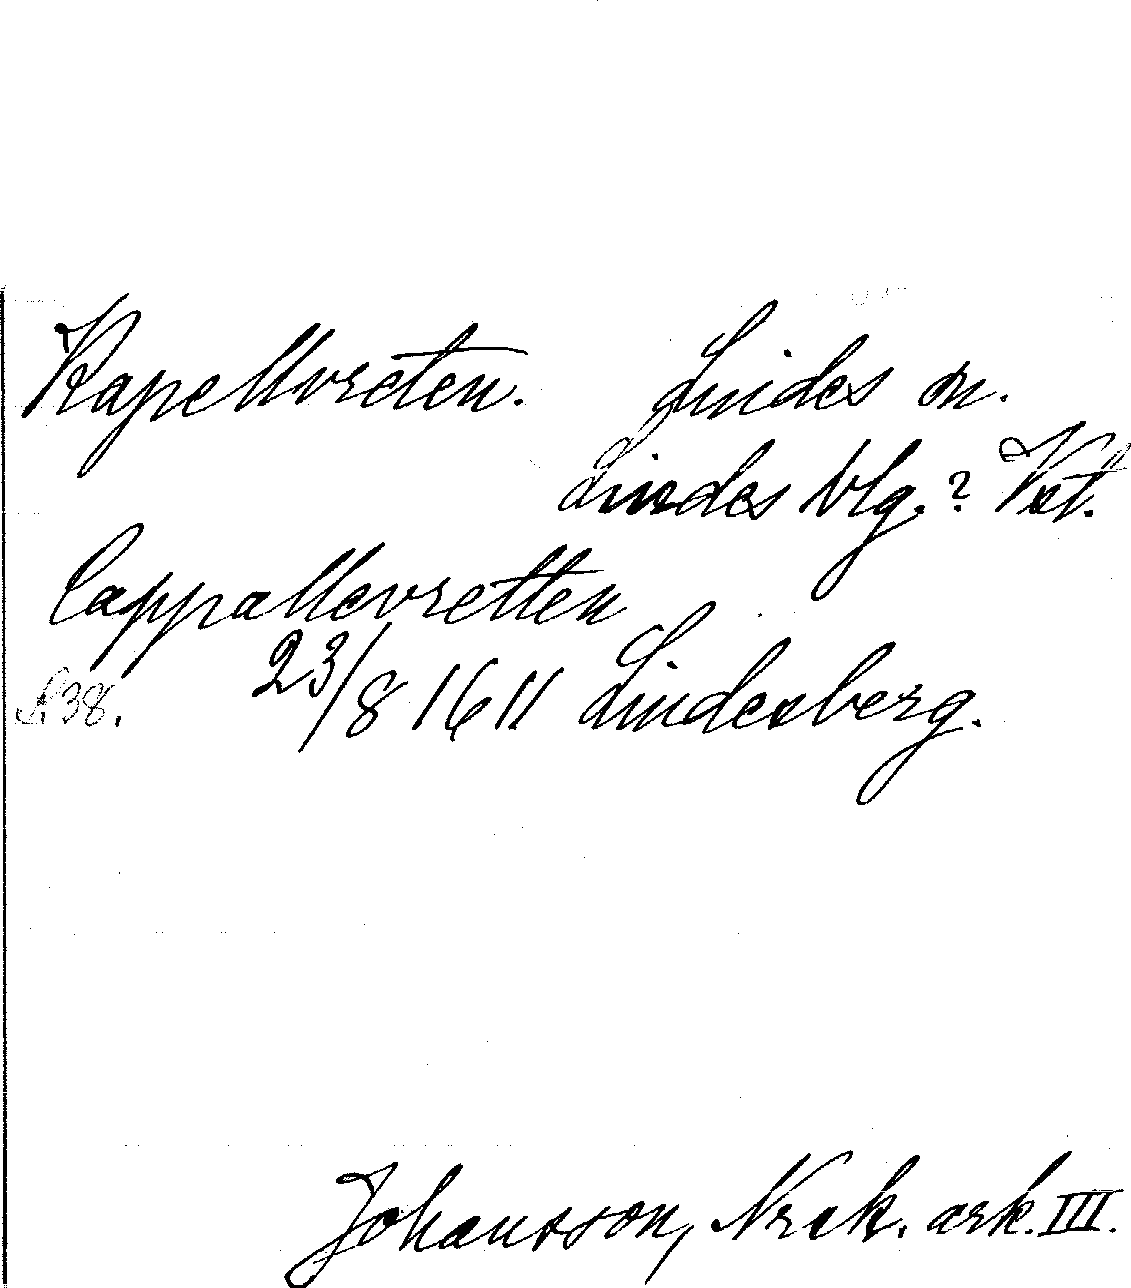 Kapellvreten. Lindes sn.
Lindes blg.? Vstl.
Cappallevretten
23/8 1611 Lindesberg.
S. 38.
Johansson, Nrak. ark. III.